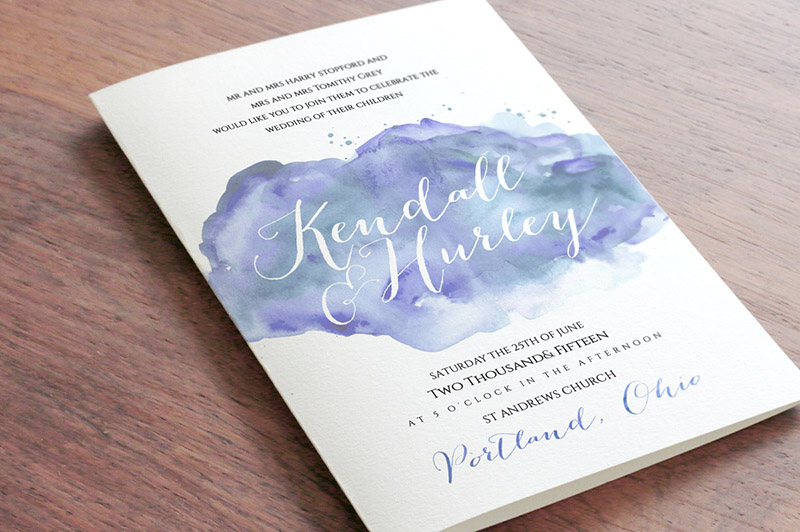 MR AND MRS HARRY STOPFORD AND
MRS AND MRS TOMITHY GREY
WOULD LIKE YOU TO JOIN THEM TO CELEBRATE THE
WEDDING OF THEIR CHILDREN
Kendall
& Hurley
SATURDAY THE 25TH OF JUNE
TWO THOUSAND& FIFTEEN
AT 5 O'CLOCK IN THE AFTERNOON
ST ANDREWS CHURCH
Portland, Ohio